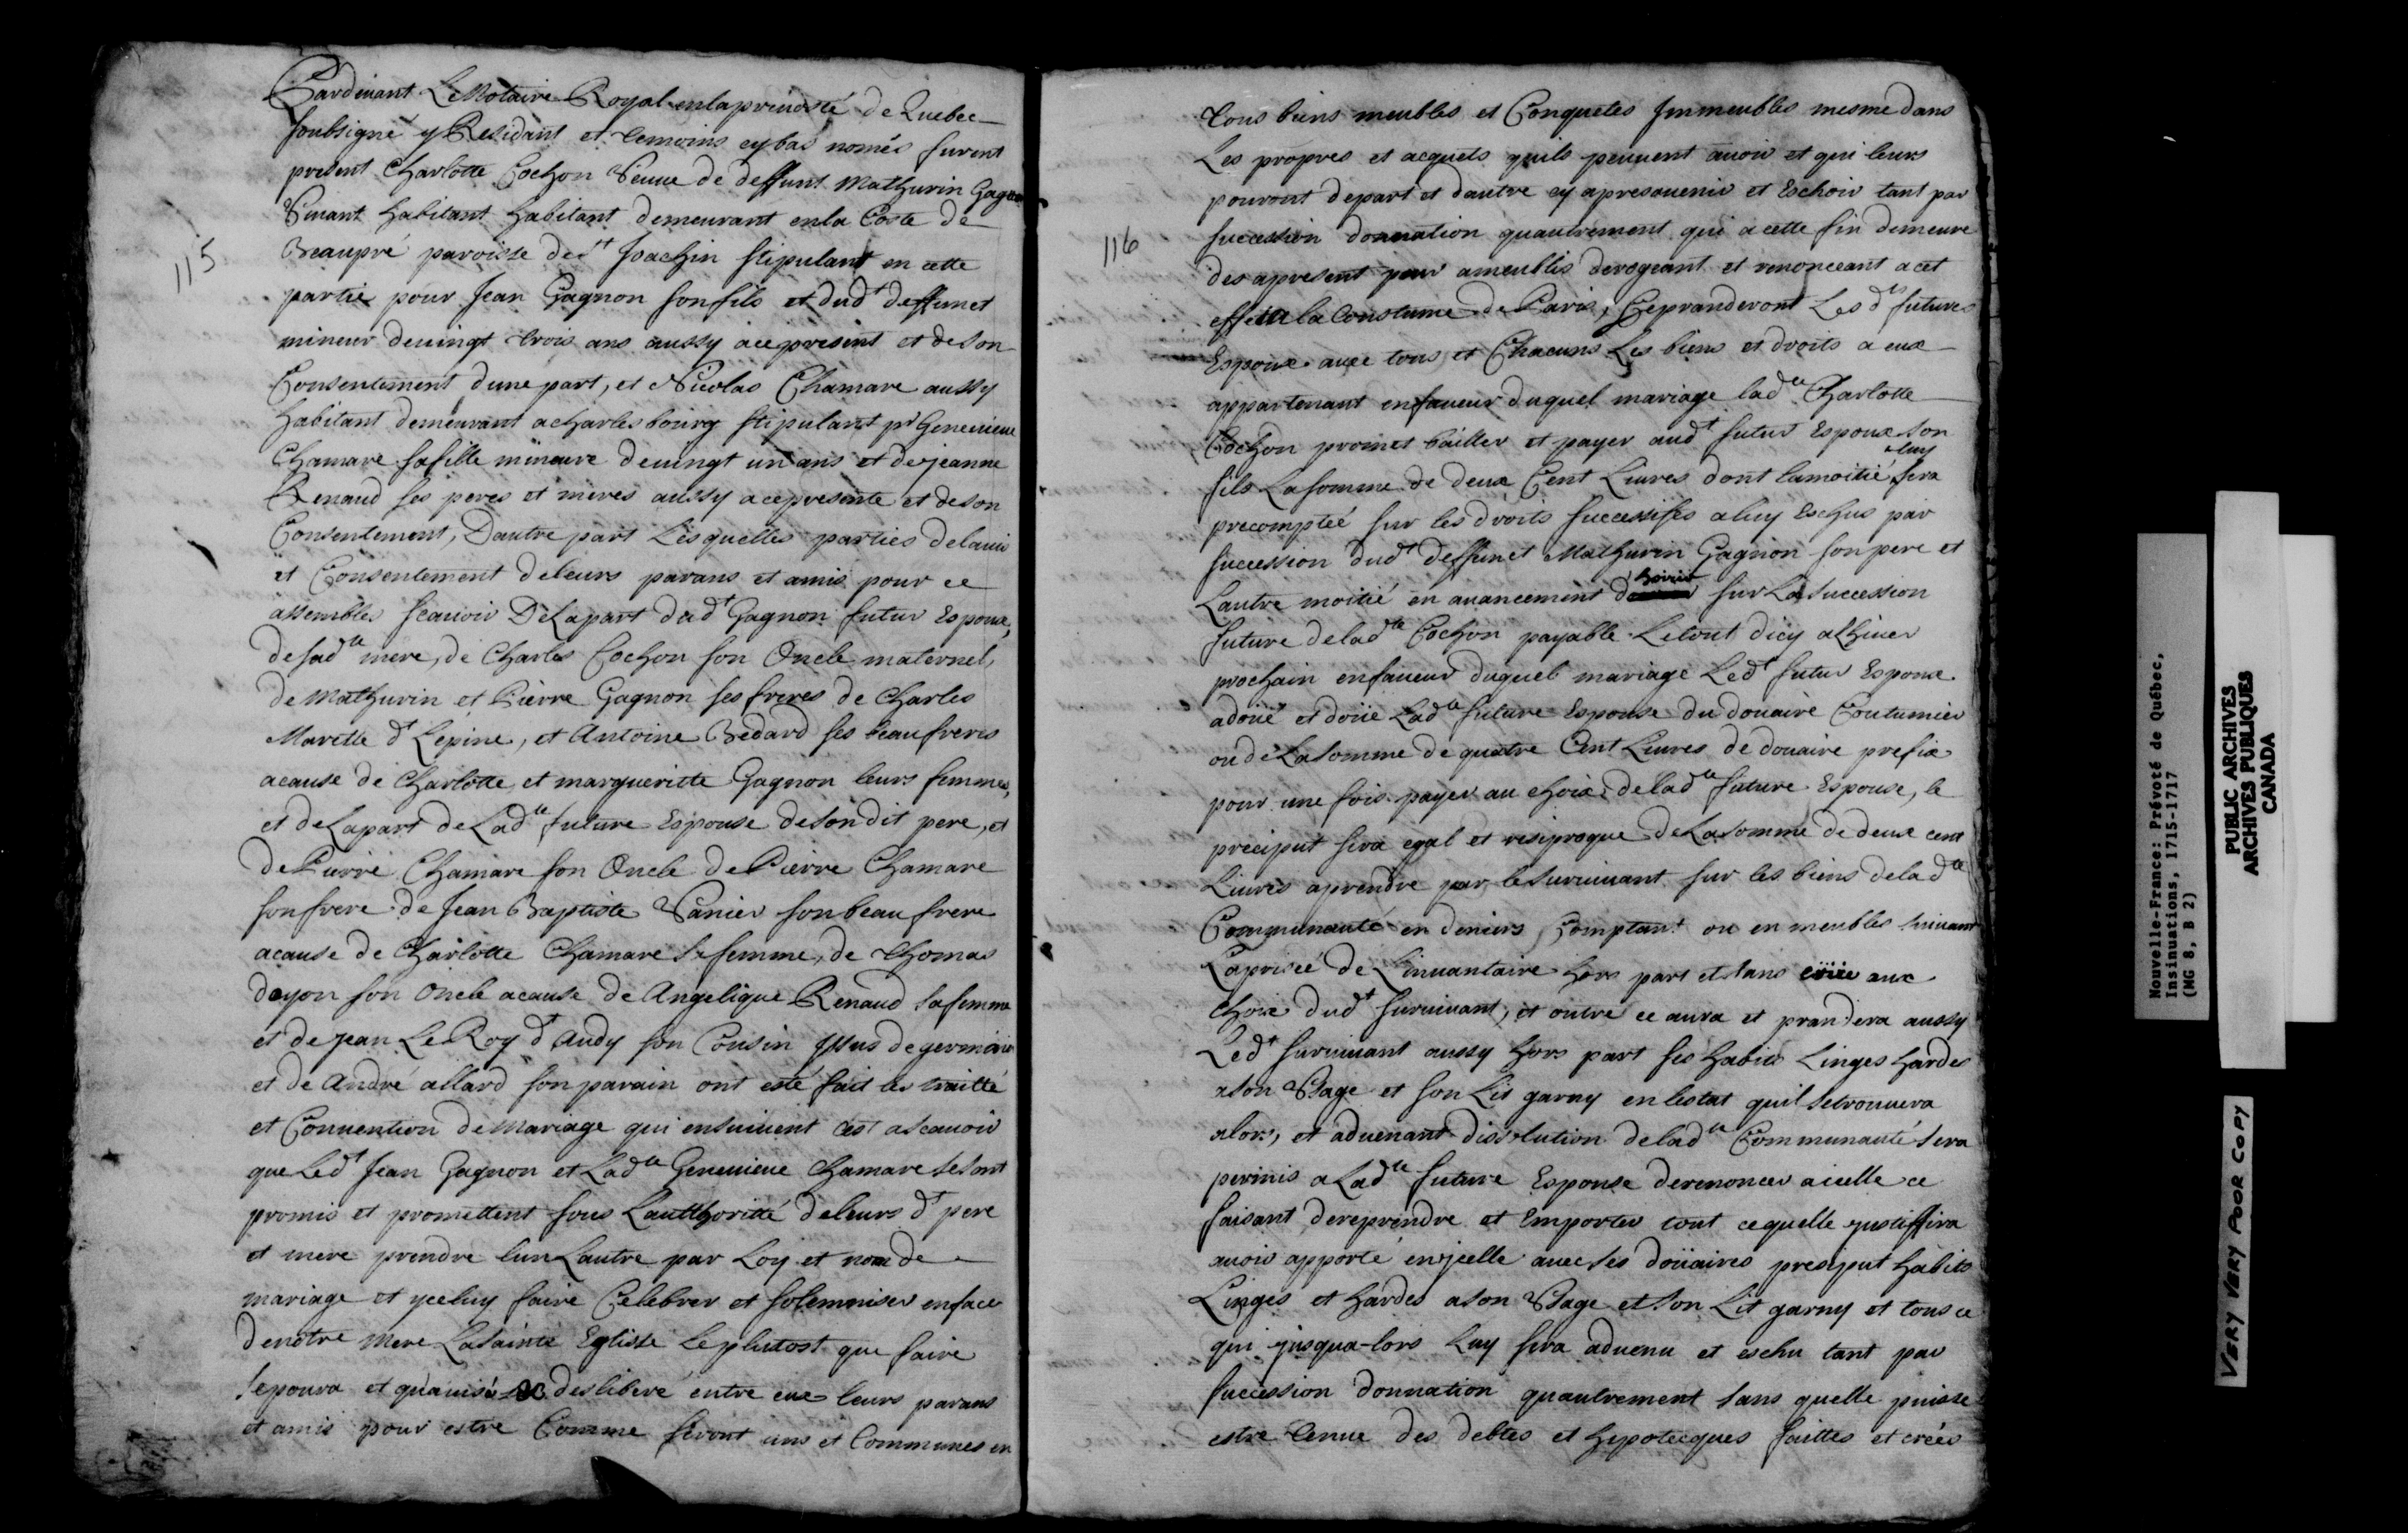 Pardevant Le Notaire Royal enlaprevosté de Quebec
soubsigné y Residant et temoins cy bas només furent
present Charlotte Cochon Veuve de deffunt Mathurin Gagnon
Vivant habitant habitant demeurant enla Coste de
Beaupré paroisse de St Joachin stipulant en cette
partie pour Jean Gagnon sonfils et dudt deffunct
mineur devingt trois ans aussy acepresent et deson
Consentement dune part, et Nicolas Chamare aussy
habitant demeurant acharlesbourg stipulant pr Genevieve
Chamare safille mineure devingt un ans et de jeanne
Renaud ses peres et meres aussy acepresente et deson
Consentement, Dautre part Lesquelles parties delavis
et Consentement deleurs parans et amis pour ce
assembles scavoir DeLapart dudt Gagnon futur Espoux,
desadte mere, de Charles Cochon son Oncle maternel,
de Mathurin et Pierre Gagnon ses freres de Charles
Marette dt Lepine, et Antoine Bedard ses beaufreres
acause de Charlotte et margueritte Gagnon leurs femmes,
et deLapart deLadte future Espouse desondit pere, et
de Pierre Chamare son Oncle de Pierre Chamare
sonfrere de Jean Baptiste Vanier sonbeaufrere
acause de Charlotte Chamare Sa femme, de Thomas
doyon son Oncle acause de Angelique Renaud Safemme
et de Jean Le Roy dt Audy son Cousin Issus degermain
et de André allard sonparain ont esté fait les traitté
et Convention deMariage qui ensuivent cest ascavoir
que Ledt Jean Gagnon et Ladte Genevieve Chamare sesont
promis et promettent sous Lautthoritté deleurs dt pere
et mere prendre lun Lautre par Loy et nom de
mariage et yceluy faire Celebrer et solemniser enface
denotre Mere LaSainte Eglisse Leplutost que faire
sepoura et quavisé desliberé entre eux leurs parans
et amis pour estre Comme seront uns et Communes en
115
tous biens meubles et Conquetes Immeubles mesme dans
Les propres et acquets quils peuvent avoir et qui leurs
pouront depart et dautre cy apresavenir et Eschoir tant par
succession donnation quautrement qui a cette fin demeure
des apresent pour ameublis derogeant et renonceant acet
effect la Coustume de Paris, Ceprenderont Lesdts futures
Espoux avec tous et Chacuns Les biens et droits a eux
appartenant enfaveur duquel mariage ladte Charlotte
Cochon promet bailler et payer audt futur Espoux son
fils Lasomme de deux Cent Livres dont lamoitié luy sera
precomptéé sur les droits successifes aluy Eschus par
succession dudt deffunct Mathurin Gagnon sonpere et
Lautre moitié en avancement dhoirie sur La succession
future deladte Cochon payable Letout dicy alhiver
prochain enfaveur duquel mariage Ledt futur Espoux
adoüé et doüe Ladte future Espouse du doüaire Coutumier
ou deLasomme de quatre Cent Livres de doüaire prefix
pour une fois payer au choix deladte future Espouse, le
preciput sera egal et resiproque deLasomme de deux cent
Livres aprendre par lesurvivant sur les biens deladte
Communauté en deniers Comptant ou en meubles suivant
Laprisée de Linvantaire hors part et sans criiée aux
choix dudt survivant, et outre ce aura et prandera aussy
Ledt survivant aussy hors part ses habits Linges hardes
ason Usage et son Lit garny en lestat quil setrouvera
alors, et advenant dissolution deladte Communauté sera
permis a Ladte future Espouse derenoncer aicelle ce
faisant dereprendre et Emporter tout cequelle justiffira
avoir apporté enycelle avec ses doüaires presiput habits
Linges et hardes ason Usage et son Lit garny et tous ce
qui jusqua-lors Luy sera advenu et eschu tant par
succession donnation quautrement sans quelle puisse
estre tenue des debtes et hypotecques faittes et créés
116
Nouvelle-France: Prévoté de Québec,
Insinuations, 1715-1717
(MG 8, B 2)
PUBLIC ARCHIVES
ARCHIVES PUBLIQUES
CANADA
VERY VERY POOR COPY